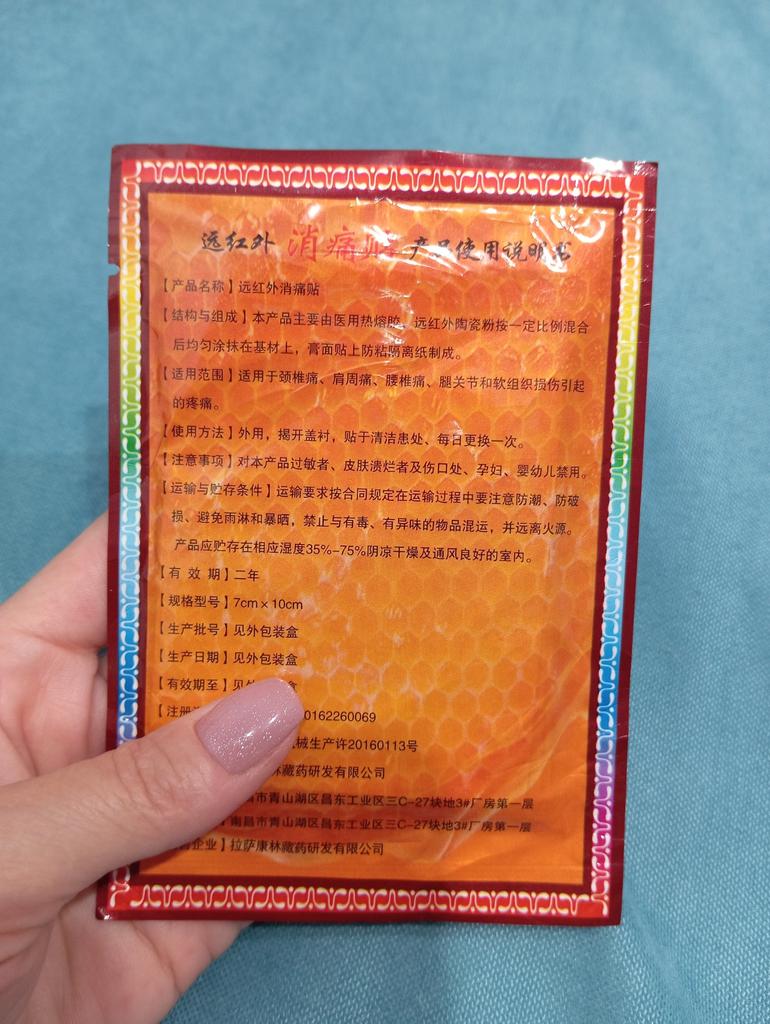 远红外 消痛贴 产品使用说明书
【产品名称】远红外消痛贴
【结构与组成】本产品主要由医用热熔胶、远红外陶瓷粉按一定比例混合
后均匀涂抹在基材上，膏面贴上防粘隔离纸制成。
【适用范围】适用于颈椎痛、肩周痛、腰椎痛、腿关节和软组织损伤引起
的疼痛。
【使用方法】外用，揭开盖衬，贴于清洁患处、每日更换一次。
【注意事项】对本产品过敏者、皮肤溃烂者及伤口处、孕妇、婴幼儿禁用。
【运输与贮存条件】运输要求按合同规定在运输过程中要注意防潮、防破
损、避免雨淋和暴晒，禁止与有毒、有异味的物品混运，并远离火源。
产品应贮存在相应湿度35%-75%阴凉干燥及通风良好的室内。
【有 效 期】二年
【规格型号】7cm×10cm
【生产批号】见外包装盒
【生产日期】见外包装盒
【有效期至】见外
【注册 0162260069
械生产许20160113号
林藏药研发有限公司
昌市青山湖区昌东工业区三C-27块地3#厂房第一层
南昌市青山湖区昌东工业区三C-27块地3#厂房第一层
企业】拉萨康林藏药研发有限公司